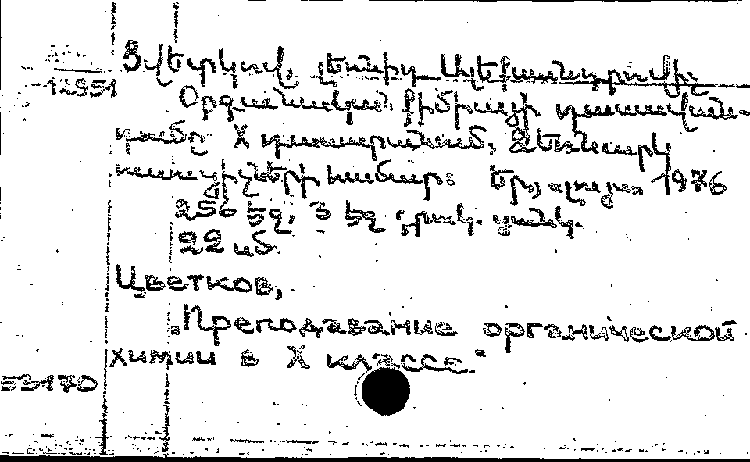 Ցվետկով, Լեոնիդ Ալեքսանդրովիչ
12951
Օրգանական քիմիայի դասավան-
դումը X դասարանում: Ձեռնարկ
ուսուցիչների համար: Եր., «Լույս» 1976
256 էջ, 3 էջ գրակ. ցանկ.
22 սմ.
Цветков,
„Преподавание органической
химии в X классе."
53170